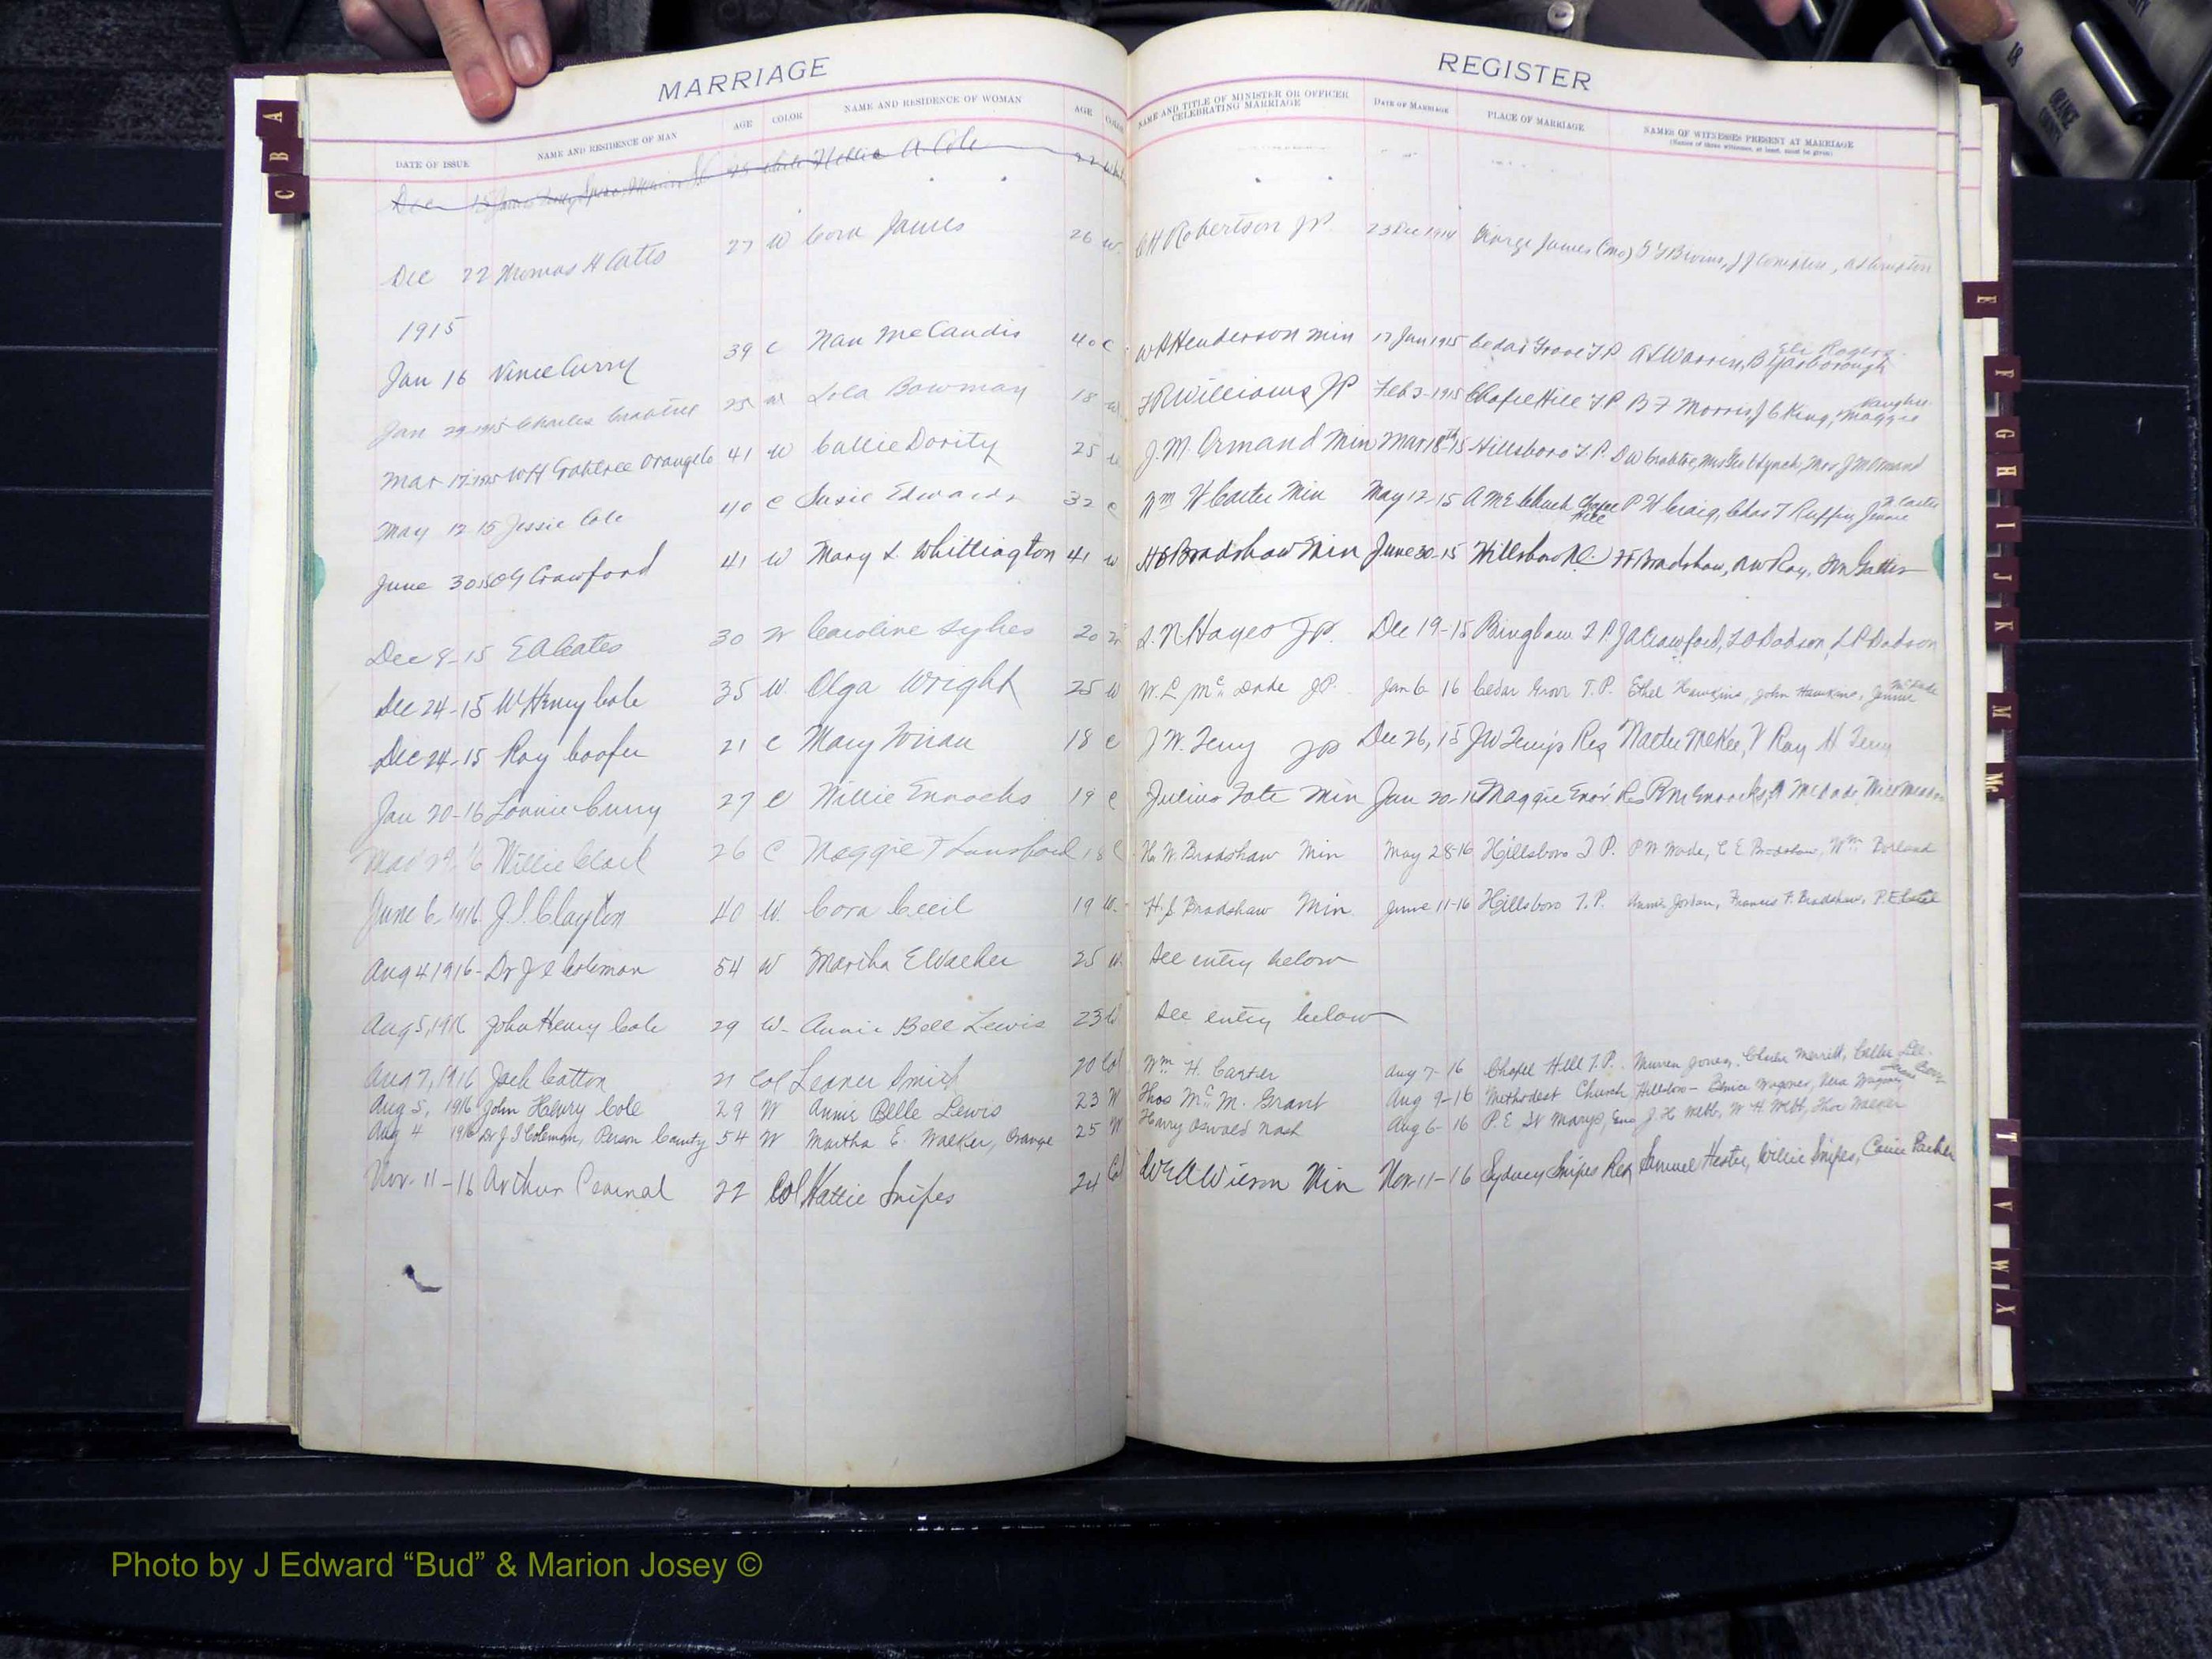 MARRIAGE REGISTER
DATE OF ISSUE NAME AND RESIDENCE OF MAN AGE COLOR NAME AND RESIDENCE OF WOMAN AGE COLOR NAME AND TITLE OF MINISTER OR OFFICER CELEBRATING MARRIAGE DATE OF MARRIAGE PLACE OF MARRIAGE NAMES OF WITNESSES PRESENT AT MARRIAGE
(Names of three witnesses, at least, must be given)
Dec 15 James A Cole
Dec 22 Thomas H Catts 27 W Cora James 26 W CH Robertson JP 23 Dec 1914 George James
1915
Jan 16 Vince Curry 39 C Nan McCandis 40 C Henderson Min 17 Jan 1915 Cedar Grove T.P. A L Warren, Eli Rogers B Yarborough
Jan 29-1915 Charles Crabtree 25 W Lola Bowman 18 W Williams JP Feb 3-1915 Chapel Hill T.P. B F Morris, J C King, Maggie Vaughn
Mar 17 1915 WH Crabtree Orange Co 41 W Callie Dority 25 W J. M. Ormand Min Mar 18th 15 Hillsboro T.P. D W Crabtree, Mrs Geo C Lynch, Mrs J M Ormand
May 12 15 Jessie Cole 40 C Susie Edwards 32 C Wm H Carter Min May 12-15 A M E Church Chapel Hill P H Craig, Chas T Ruffin, Jennie N Carter
June 30 15 Crawford 41 W Mary L. Whittington 41 W Bradshaw Min June 30-15 Hillsboro N.C. Bradshaw, AW Ray, Gattis
Dec 8-15 E A Cates 30 W Caroline Sykes 20 W S. N Hayes J.P. Dec 19-15 Bingham T.P. J A Crawford, Dodson, L P Dodson
Dec 24-15 W Henry Cole 35 W. Olga Wright 25 W W. L McDade J.P. Jan 6 16 Cedar Grove T.P. Ethel Hawkins, John Hawkins, Jennie McDade
Dec 24-15 Roy Cooper 21 C Mary 18 C J W. Terry JP Dec 26, 15 JW Terry's Res McKee, V Ray, H Terry
Jan 20-16 Lonnie Curry 27 C Willie Enoochs 19 C Julius Tate Min Jan 20-16 Maggie Res
29, 16 Willie Clark 26 C Maggie T Lunsford 18 C H. W. Bradshaw Min May 28-16 Hillsboro T.P. P W Wade, C E Bradshaw, Wm Borland
June 6-1916 J. S. Clayton 40 W. Cora Cecil 19 W. H. S Bradshaw Min. June 11-16 Hillsboro T.P. Annie Jordan, Frances F. Bradshaw, P. E
Aug 4 1916- Dr J S Coleman 54 W Martha E Walker 25 W. See entry below
Aug 5, 1916 John Henry Cole 29 W- Annie Bell Lewis 23 W See entry below
Aug 7, 1916 Jack Cotton 21 Col Leaner Smith 20 Col Wm H. Carter Aug 7-16 Chapel Hill T.P. Jones, Charlie Merritt, Callie Lee
Aug 5, 1916 John Henry Cole 29 W Annie Belle Lewis 23 W Thos McM. Grant Aug 9-16 Methodist Church Hillsboro- Bernice Wagoner, Vera Wagoner
Aug 4 1916 Dr J S Coleman, Person County 54 W Martha E. Walker, Orange 25 W Harry Oswald Nash Aug 6-16 P. E St Marys, J. H Webb, W H. Webb, Thos Walker
Nov-11-16 Arthur 22 Col Hattie Snipes 24 Col Wilson Min Nov 11-16 Sydney Snipes Res Samuel Hester, Willie Snipes, Parker
A
B
C
E
F
G
H
I
J
K
M
Mc
T
V
W
X
18
ORANGE COUNTY
Photo by J Edward “Bud” & Marion Josey ©